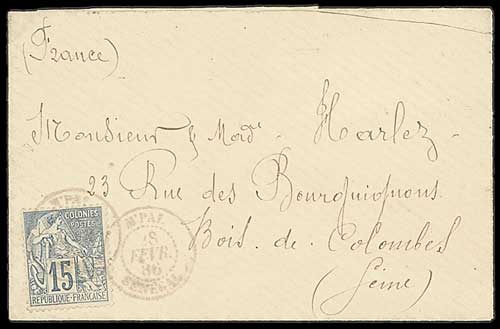 (France)
Monsieur & Mad^e - Harlez -
23 Rue des Bourguignons
Bois. de. Colombes
(Seine)
M'PAL
M'PAL
8
FEVR.
86
SENEGAL
COLONIES
POSTES
15
RÉPUBLIQUE FRANÇAISE